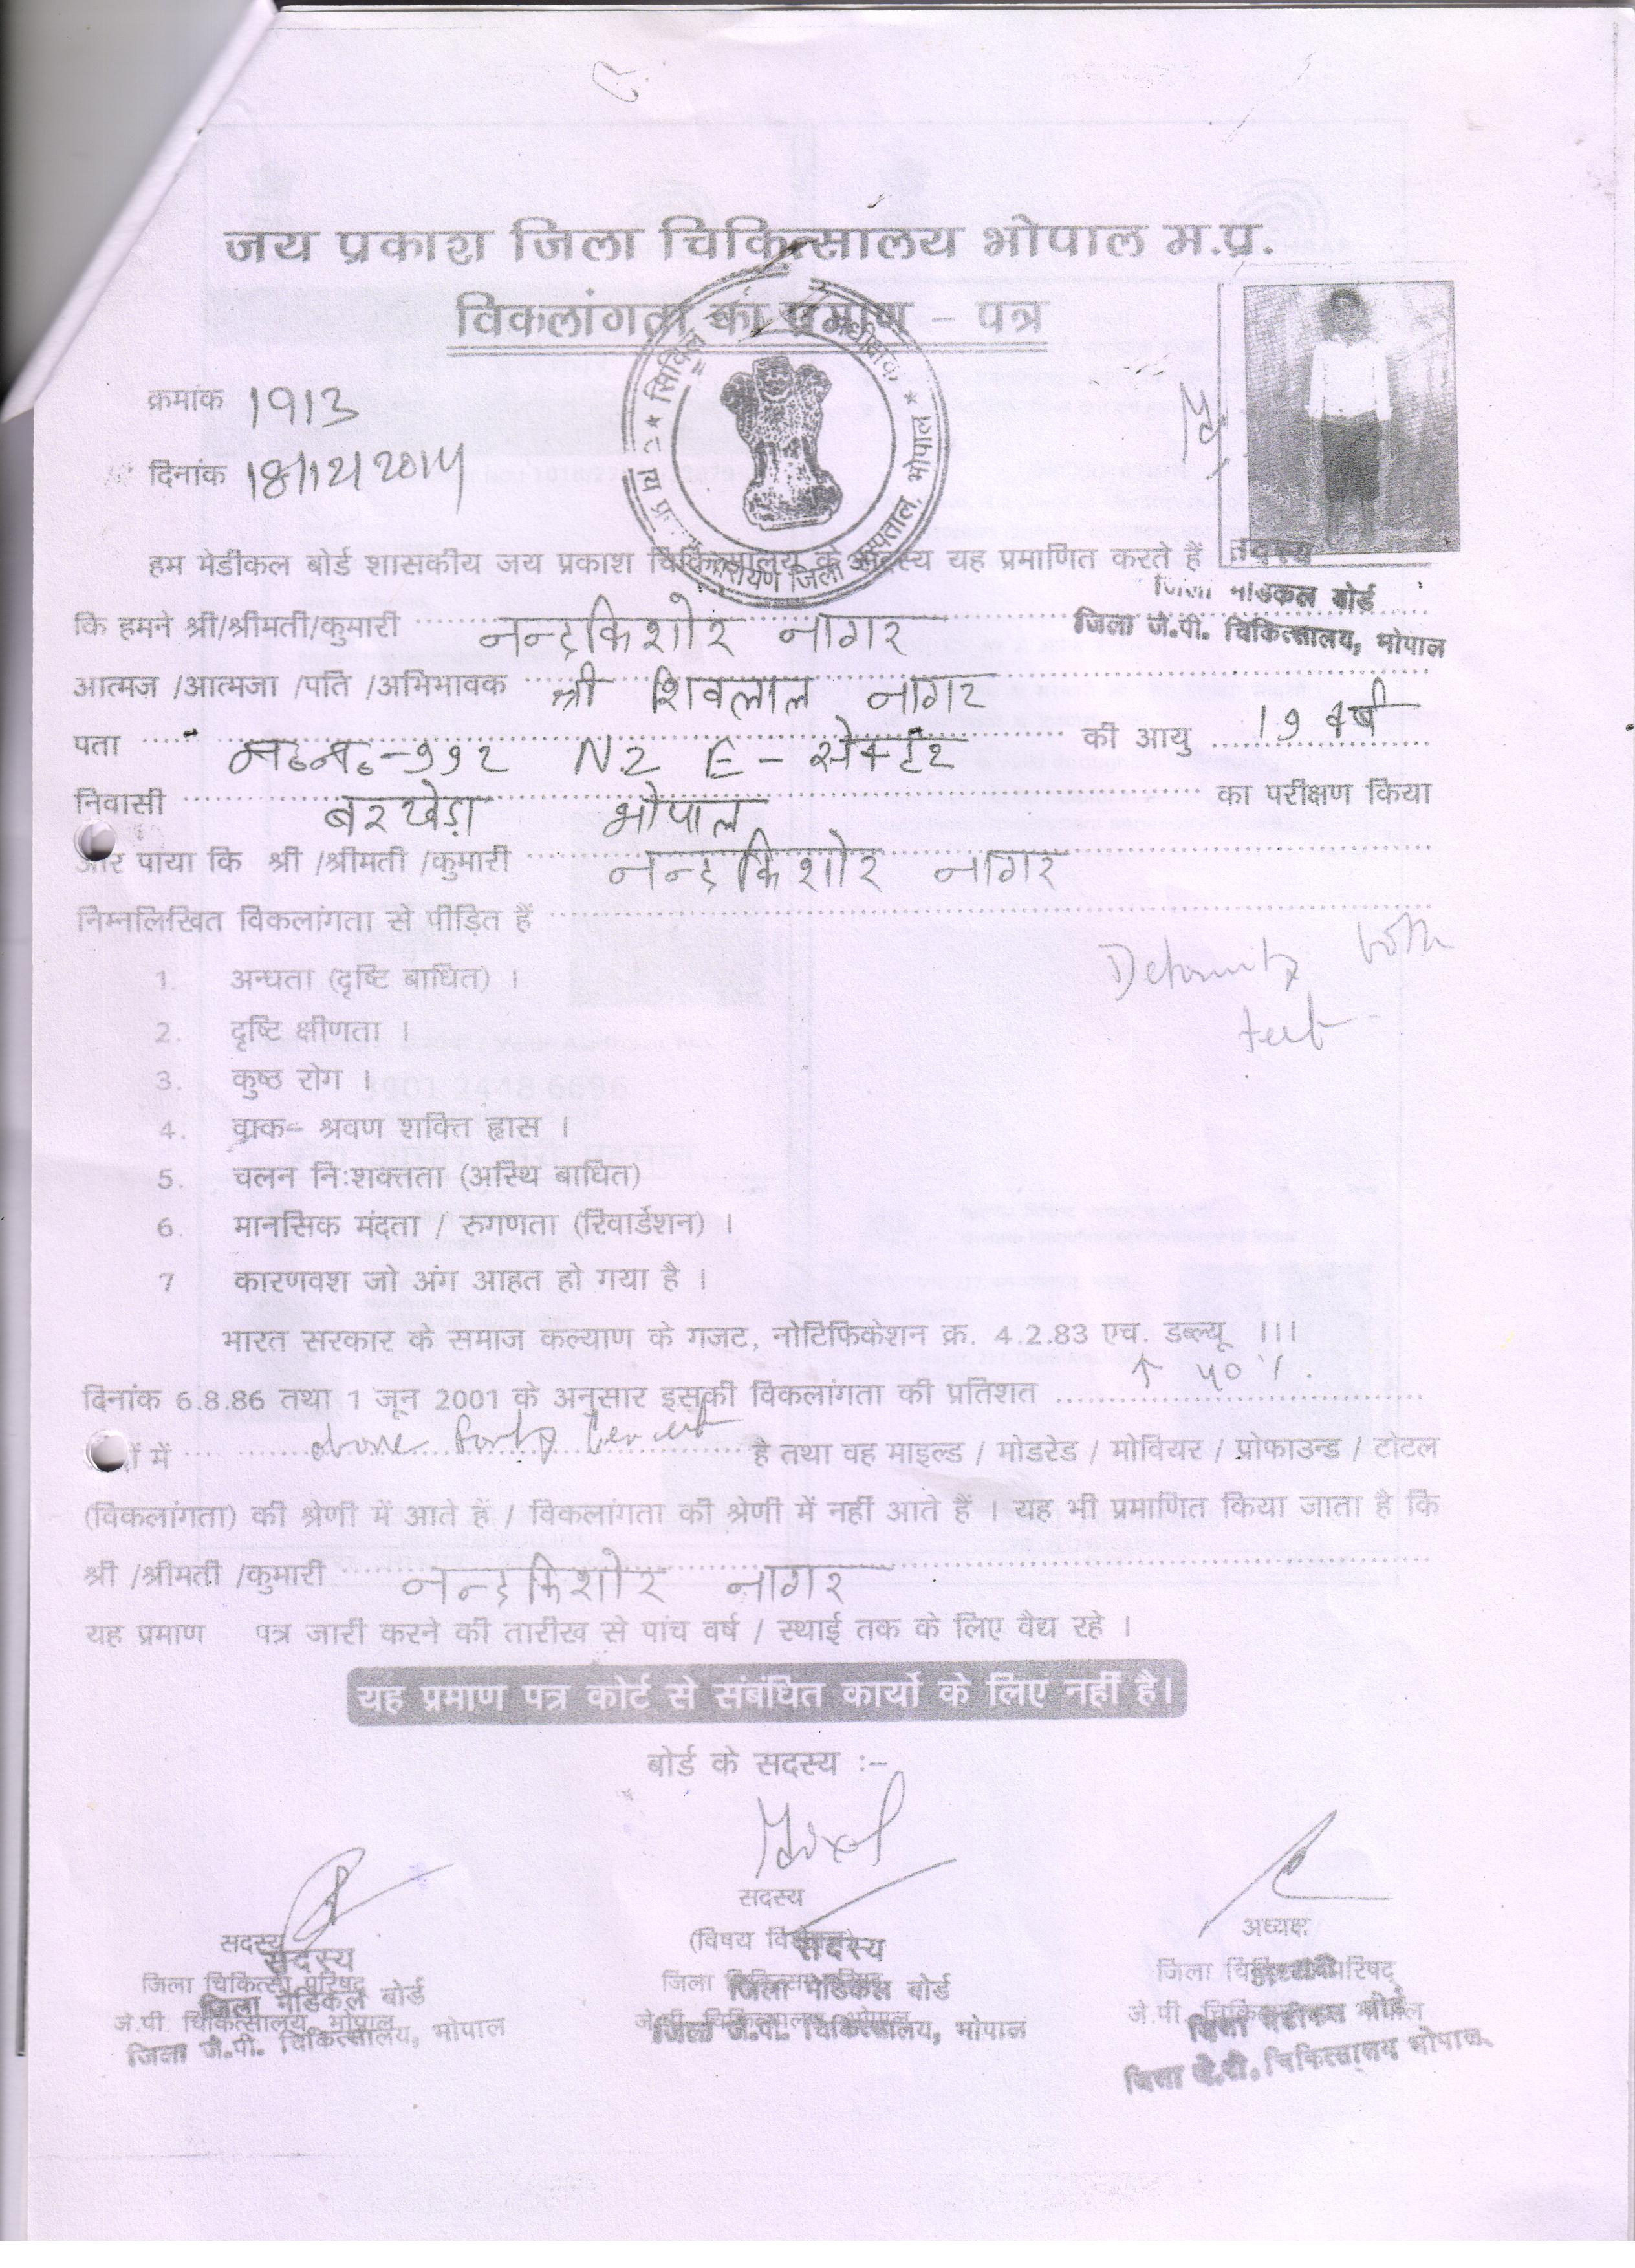 जय प्रकाश जिला चिकित्सालय भोपाल म.प्र.
विकलांगता का प्रमाण - पत्र
क्रमांक 1913
दिनांक 18/12/2014
हम मेडीकल बोर्ड शासकीय जय प्रकाश चिकित्सालय के सदस्य यह प्रमाणित करते हैं
सदस्य
जिला मेडिकल बोर्ड
जिला जे.पी. चिकित्सालय, भोपाल
कि हमने श्री/श्रीमती/कुमारी नन्दकिशोर नागर
आत्मज /आत्मजा /पति /अभिभावक श्री शिवलाल नागर
पता म.न.-992 N2 E - सेक्टर की आयु 19 वर्ष
निवासी बरखेड़ा भोपाल का परीक्षण किया
और पाया कि श्री /श्रीमती /कुमारी नन्दकिशोर नागर
निम्नलिखित विकलांगता से पीड़ित हैं
Deformity both
feet
1. अन्धता (दृष्टि बाधित) ।
2. दृष्टि क्षीणता ।
3. कुष्ठ रोग ।
4. वाक- श्रवण शक्ति ह्रास ।
5. चलन निःशक्तता (अस्थि बाधित)
6. मानसिक मंदता / रुगणता (रिवार्डेशन) ।
7 कारणवश जो अंग आहत हो गया है ।
भारत सरकार के समाज कल्याण के गजट, नोटिफिकेशन क्र. 4.2.83 एच. डब्ल्यू ।।।
दिनांक 6.8.86 तथा 1 जून 2001 के अनुसार इसकी विकलांगता की प्रतिशत ↑ 40 %.
में above forty percent है तथा वह माइल्ड / मोडरेड / मोवियर / प्रोफाउन्ड / टोटल
(विकलांगता) की श्रेणी में आते हैं / विकलांगता की श्रेणी में नहीं आते हैं । यह भी प्रमाणित किया जाता है कि
श्री /श्रीमती /कुमारी नन्दकिशोर नागर
यह प्रमाण पत्र जारी करने की तारीख से पांच वर्ष / स्थाई तक के लिए वैद्य रहे ।
यह प्रमाण पत्र कोर्ट से संबंधित कार्यो के लिए नहीं है।
बोर्ड के सदस्य :-
सदस्य
सदस्य
जिला चिकित्सा परिषद्
जिला मेडिकल बोर्ड
जे.पी. चिकित्सालय, भोपाल
जिला जे.पी. चिकित्सालय, भोपाल
सदस्य
(विषय विशेषज्ञ)
सदस्य
जिला मेडिकल बोर्ड
जे.पी. चिकित्सालय, भोपाल
जिला जे.पी. चिकित्सालय, भोपाल
अध्यक्ष
जिला चिकित्सा परिषद्
जे.पी. चिकित्सालय भोपाल
जिला मेडीकल बोर्ड
जिला जे.पी. चिकित्सालय भोपाल